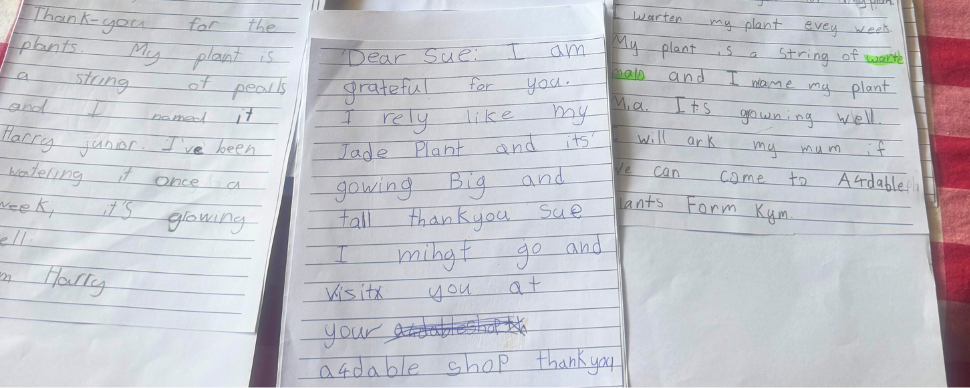 Thank-you for the
plants. My plant is
a string of pearls
and I named it
Harry junior. I've been
watering it once a
week, it's glowing
ell.
m Harry
Dear Sue: I am
grateful for you.
I rely like my
Jade Plant and its
gowing Big and
tall thankyou Sue
I mihgt go and
visitx you at
your
a4dable shop thankyou
I warten my plant evey week.
My plant is a String of warte
malo and I name my plant
Mia. Its gowning well.
I will ark my mum if
we can come to A4dable
lants Form Kym.